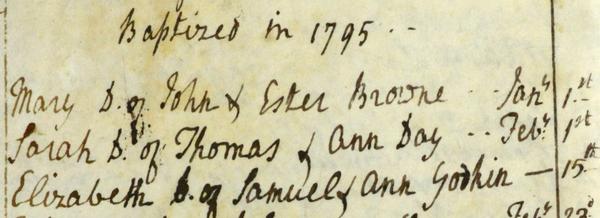 Baptized in 1795 --
Mary D. of John & Ester Browne -- Janʸ 1st
Sarah D. of Thomas & Ann Day -- Febʸ 1st
Elizabeth D. of Samuel & Ann Godkin — 15th
Febʸ 22d